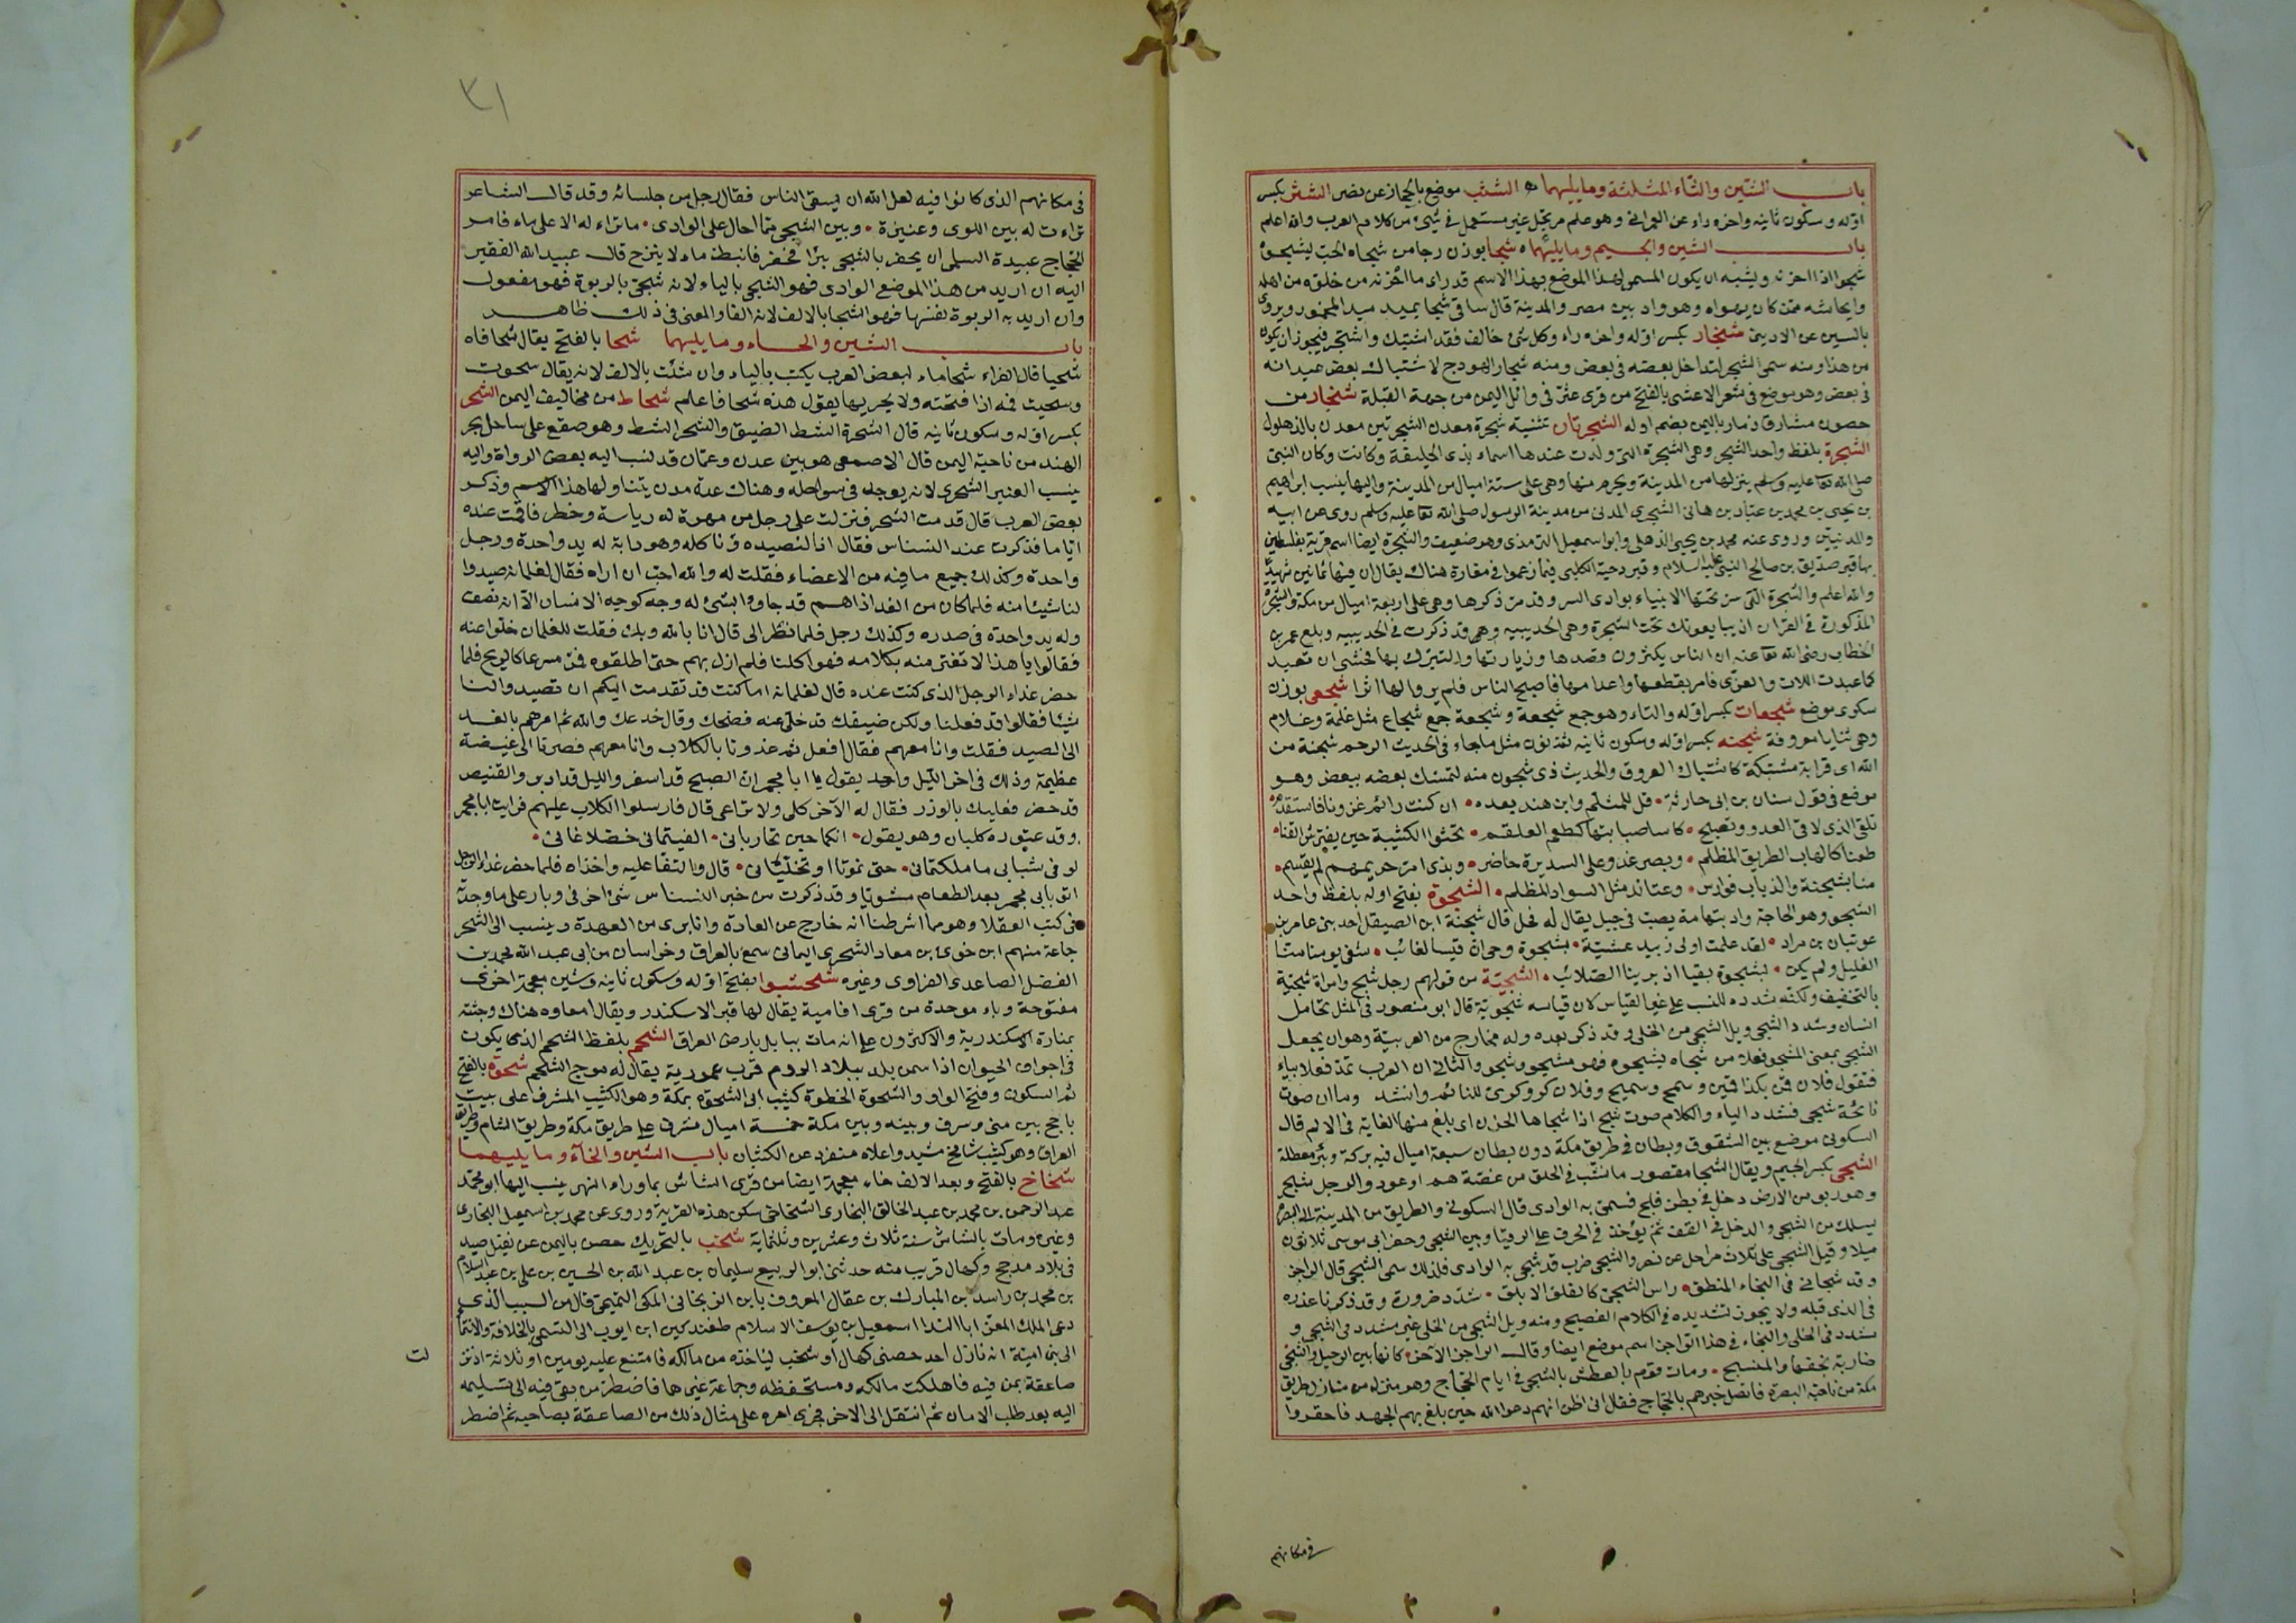 باب الشين والثاء المثلثة وما يليهما الشث موضع بالحجاز عن نصر الشثر بكسر
اوله وسكون ثانيه واخره راء عن العمراني وهو علم مرتجل غير مستعمل في شيء من كلام العرب والله اعلم
باب الشين والجيم وما يليهما شجا بوزن رجا من شجاه الحب يشجوه
شجوا اذا احزنه ويشبه ان يكون المسمى لهذا الموضع بهذا الاسم قد راى ما احزنه من خلقه من اهله
وايحاشه ممن كان يهواه وهو واد بين مصر والمدينة قال ساقي شجا يميد ميد المخمور ويروى
بالسين عن الاديبي شجار بكسر اوله واخره راء وكل شئ خالف فقد اشتبك واشتجر فيجوز ان يكون
من هذا ومنه سمى الشجر لتداخل بعضه في بعض ومنه شجار الهودج لاشتباك بعض عيدانه
في بعض وهو موضع في شعر الاعشى بالفتح من قرى عثر في وائل اليمن من جهة القبلة شجار من
حصون مشارق ذمار باليمن بضم اوله الشجرتان تثنية شجرة معدن الشجرتين معدن بالذهلول
الشجرة بلفظ واحد الشجر وهي الشجرة التي ولدت عندها اسماء بذى الحليفة وكانت وكان النبي
صلى الله تعا عليه وسلم ينزلها من المدينة ويحرم منها وهي على ستة اميال من المدينة واليها ينسب ابراهيم
بن يحيى بن محمد بن عباد بن هانئ الشجري المدني من مدينة الرسول صلى الله تعا عليه وسلم روى عن ابيه
والمدنيين وروى عنه محمد بن يحيى الذهلي وابو اسمعيل الترمذي وهو ضعيف والشجرة ايضا اسم قرية بفلسطين
بها قبر صديق بن صالح النبي عليه السلام وقبر دحية الكلبي فيما زعموا في مغارة هناك يقال ان فيها ثمانين شهيدا
والله اعلم والشجرة التي سر تحتها الانبياء بوادى السرر وقد مر ذكرها وهي على اربعة اميال من مكة والشجرة
المذكورة في القران اذ يبايعونك تحت الشجرة وهي الحديبيه وهي قد ذكرت في الحديبيه وبلغ عمر بن
الخطاب رضى الله تعا عنه ان الناس يكثرون قصدها وزيارتها والتبرك بها فخشى ان تعبد
كما عبدت اللات والعزى فامر بقطعها واعدامها فاصبح الناس فلم يروا لها اثرا شجعى بوزن
سكرى موضع شجعات بكسر اوله والتاء وهو جمع شجعة وشجعة جمع شجاع مثل غلمة وغلام
وهي ثنايا معروفة شجنه بكسر اوله وسكون ثانيه ثم نون مثل ما جاء في الحديث الرحم شجنة من
الله اى قرابة مشتبكة كاشتباك العروق والحديث ذى شجون منه لتمسك بعضه ببعض وهو
موضع في قول سنان بن ابى حارثة قل للمثلم وابن هند بعده ان كنت رائم عزنا فاستقدم
تلقى الذى لاقى العدو وتصبح كاسا صبابتها كطعم العلقم تحشوا الكتيبة حين يفترش القنا
طعنا كالهاب الطريق المظلم وبصرغد وعلى السديرة حاضر وبذى امر حريمهم لم يقسم
منا بشجنة والذباب فوارس وعتائد مثل السواد المظلم الشجوة بفتح اوله بلفظ واحد
الشجو وهو الحاجة واد بتهامة يصب في جبل يقال له فحل قال شجنة ابن الصيقل احد بني عامر بن
عوتبان بن مراد لقد علمت اولى زبيد عشية بشجوة وحران قيسا لغائب سقى يومنا متنا
الغليل ولم يكن لبشجوة بقيا اذ برينا الصلائب الشجيّة من قولهم رجل شج وامراة شجية
بالتخفيف ولكنه شدده للنسب على غير القياس لان قياسه شجوية قال ابو منصور في المثل تحامل
انسان وشدد الشجي ويل الشجي من الخلي وقد ذكر بعده وله مخارج من العربية وهو ان يجعل
الشجى بمعنى المشجو فعلا من شجاه يشجوه فهو مشجو وشجي والثاني ان العرب تمد فعلا بياء
فتقول فلان قمن بكذا قمين وسمج وسميج وفلان كرو وكرى للنائم وانشد وما ان صوت
نائحة شجي فشدد الياء والكلام صوت شج اذا شجاها الحزن اى بلغ منها الغاية في الالم قال
السكونى موضع بين الشقوق وبطان في طريق مكة دون بطان سبعة اميال فيه بركة وبئر معطلة
الشجي بكسر الجيم ويقال الشجا مقصور ما نشب في الحلق من غصة هم او عود والرجل شج
وهو ربو من الارض دخل في بطن فلج فسمى به الوادى قال السكونى والطريق من المدينة الى البصرة
يسلك من الشجى والدخل في القف ثم يؤخذ في الحزق على الرقيا وبين الشجي وحفر ابى موسى ثلاثون
ميلا وقيل الشجي على ثلاث مراحل من نصر والشجي ضرب قد شجي به الوادى فلذلك سمى الشجي قال الراجز
وقد شجانى في النجاء المنطق راس الشجي كالفلق الابلق شدد ضرورة وقد ذكرنا عذره
في الذى قبله ولا يجوز تشديده في الكلام الفصيح ومنه ويل الشجي من الخلي غير مشدد في الشجي و
شدد في الخلي والنجاء في هذا الراجز اسم موضع ايضا وقال الراجز الاخر كانها بين الرحيل والشجي
ضاربة بخفها والمنسج ومات قوم بالعطش بالشجي في ايام الحجاج وهو منزل من منازل طريق
مكة من ناحية البصرة فاتصل خبرهم بالحجاج فقال انى اظن انهم دعوا الله حين بلغ بهم الجهد فاحفروا
في مكانهم
٣١
في مكانهم الذى كانوا فيه لعل الله ان يسقى الناس فقال رجل من جلسائه وقد قال الشاعر
تراءت له بين اللوى وعنيزة وبين الشجي مما احال على الوادى ما تراءت له الا على ماء فامر
الحجاج عبيدة السلمى ان يحفر بالشجي بئرا فحفر فانبط ماء لا ينزح قال عبيد الله الفقير
اليه ان اريد من هذا الموضع الوادى فهو الشجي بالياء لانه شجي بالربوة فهو مفعول
وان اريد به الربوة نفسها فهو الشجا بالالف لانه الفاعل والمعنى في ذلك ظاهر
باب الشين والحاء وما يليهما شحا بالفتح يقال شحا فاه
شحيا قال الفراء شحا ماء لبعض العرب يكتب بالياء وان شئت بالالف لانه يقال شحوت
وشحيت فمه اذا فتحته ولا يجريها يقول هذه شحا فاعلم شحاط من مخاليف اليمن الشحر
بكسر اوله وسكون ثانيه قال الشحرة الشط الضيق والشحر الشط وهو صقع على ساحل بحر
الهند من ناحية اليمن قال الاصمعى هو بين عدن وعمان قد نسب اليه بعض الرواة واليه
ينسب العنبر الشحرى لانه يوجد في سواحله وهناك عدة مدن يتناولها هذا الاسم وذكر
بعض العرب قال قدمت الشحر فنزلت على رجل من مهرة له رياسة وخطر فاقمت عنده
اياما فذكرت عنده النسناس فقال انا لنصيده وناكله وهو دابة له يد واحدة ورجل
واحدة وكذلك جميع ما فيه من الاعضاء فقلت له والله احب ان اراه فقال لغلمانه صيدوا
لنا شيئا منه فلما كان من الغد اذا هم قد جاؤا بشئ له وجه كوجه الانسان الا انه نصف
وله يد واحدة في صدره وكذلك رجل فلما نظر الى قال انا بالله وبك فقلت للغلمان خلوا عنه
فقالوا يا هذا لا تغتر منه بكلامه فهو اكلنا فلم ازل بهم حتى اطلقوه فمر مسرعا كالريح فلما
حضر غداء الرجل الذى كنت عنده قال لغلمانه اما كنت قد تقدمت اليكم ان تصيدوا لنا
شيئا فقالوا قد فعلنا ولكن ضيفك قد خلى عنه فضحك وقال خدعك والله ثم امرهم بالغد
الى الصيد فقلت وانا معهم فقال افعل ثم غدونا بالكلاب وانا معهم فصرنا الى غيضة
عظيمة وذلك في اخر الليل واحد يقول يا ابا مجمر ان الصبح قد اسفر والليل قد ادبر والقنيص
قد حضر فعليك بالوزر فقال له الاخر كلى ولا تراعى قال فارسلوا الكلاب عليهم فرايت ابا مجمر
وقد عتوره كلبان وهو يقول انكما حين تحاربانى الفيتمانى خضلا عانى
لو في شبابى ما ملكتمانى حتى تموتا او تخليانى قال والتقا عليه واخذاه فلما حضر غداء الرجل
اتوا بابى مجمر بعد الطعام مشويا وقد ذكرت من خبر النسناس شئ اخر في وبار على ما وجدته
في كتب العقلا وهو مما اشرطنا انه خارج عن العادة وانا برى من العهدة وينسب الى الشحر
جماعة منهم ابن خوى بن معاد الشحرى اليمانى سمع بالعراق وخراسان من ابى عبد الله محمد بن
الفضل الصاعدى الفراوى وغيره شحشبوا بفتح اوله وسكون ثانيه وشين معجمة اخرى
مفتوحة وباء موحدة من قرى افامية يقال لها قبر الاسكندر ويقال امعاوه هناك وجثته
بمنارة الاسكندرية والاكثرون على انه مات ببابل بارض العراق الشحم بلفظ الشحم الذى يكون
في اجواف الحيوان اذا سمن بلد ببلاد الروم قرب عمورية يقال له موج الشحم شحوة بالفتح
ثم السكون وفتح الواو والشحوة الخطوة كثيب ابى الشحوة بمكة وهو الكثيب المشرف على بيت
ياجج بين منى وسرف وبينه وبين مكة خمسة اميال مشرف على طريق مكة وطريق الشام وطريق
العراق وهو كثيب شامخ مشيد واعلاه منفرد عن الكثبان باب الشين والخاء وما يليهما
شخاخ بالفتح وبعد الالف خاء معجمة ايضا من قرى الشاش بما وراء النهر ينسب اليها ابو محمد
عبد الرحمن بن محمد بن عبد الخالق البخارى الشخاخى سكن هذه القرية وروى عن محمد بن اسمعيل البخارى
وغيره ومات بالشاش سنة ثلاث وعشرين وثلثماية شخب بالتحريك حصن باليمن عن نفيل صيد
في بلاد مذحج وكهال قريب منه حدثنى ابو الربيع سليمان بن عبد الله بن الحسين بن على بن عبد السلام
بن محمد بن راسد بن المبارك بن عقال المعروف بابن الزيحانى المكى التميمى قال من السبب الذى
دعى الملك المعز ابا الندا اسمعيل بن يوسف الاسلام طغتدكين ابن ايوب الى التسمى بالخلافة والانتما
الى بنى امية انه نازل احد حصنى كهال او شخب لياخذه من مالكه فامتنع عليه يومين او ثلاثة اذ نزل
صاعقة بمن فيه فاهلكت مالكه ومستحفظه وجماعة غيرها فاضطر من بقى فيه الى تسليمه
اليه بعد طلب الامان ثم انتقل الى الاخر فجرى امره على مثال ذلك من الصاعقة بصاحبه ثم اضطر
لت